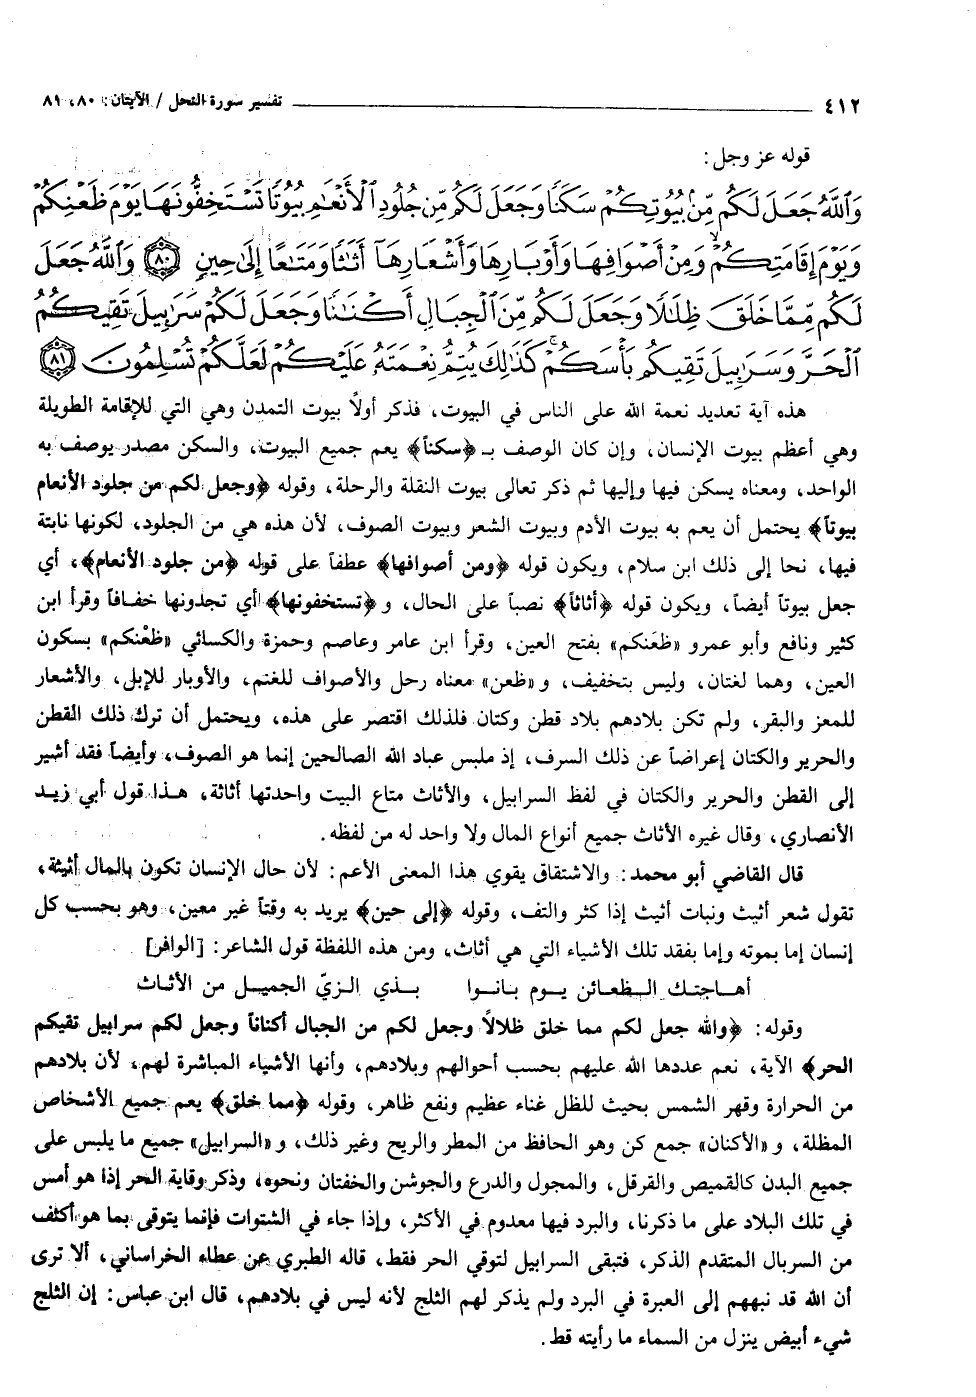 ٤١٢ ــــــــــــــــــــــــــــــــــــــــ تفسير سورة النحل / الآيتان: ٨٠، ٨١
قوله عز وجل:
وَٱللَّهُ جَعَلَ لَكُم مِّنۢ بُيُوتِكُمْ سَكَنًا وَجَعَلَ لَكُم مِّن جُلُودِ ٱلْأَنْعَـٰمِ بُيُوتًا تَسْتَخِفُّونَهَا يَوْمَ ظَعْنِكُمْ
وَيَوْمَ إِقَامَتِكُمْ ۙ وَمِنْ أَصْوَافِهَا وَأَوْبَارِهَا وَأَشْعَارِهَآ أَثَـٰثًا وَمَتَـٰعًا إِلَىٰ حِينٍ ﴿٨٠﴾ وَٱللَّهُ جَعَلَ
لَكُم مِّمَّا خَلَقَ ظِلَـٰلًا وَجَعَلَ لَكُم مِّنَ ٱلْجِبَالِ أَكْنَـٰنًا وَجَعَلَ لَكُمْ سَرَٰبِيلَ تَقِيكُمُ
ٱلْحَرَّ وَسَرَٰبِيلَ تَقِيكُم بَأْسَكُمْ ۚ كَذَٰلِكَ يُتِمُّ نِعْمَتَهُۥ عَلَيْكُمْ لَعَلَّكُمْ تُسْلِمُونَ ﴿٨١﴾
هذه آية تعديد نعمة الله على الناس في البيوت، فذكر أولاً بيوت التمدن وهي التي للإقامة الطويلة
وهي أعظم بيوت الإنسان، وإن كان الوصف بـ ﴿سكناً﴾ يعم جميع البيوت، والسكن مصدر يوصف به
الواحد، ومعناه يسكن فيها وإليها ثم ذكر تعالى بيوت النقلة والرحلة، وقوله ﴿وجعل لكم من جلود الأنعام
بيوتاً﴾ يحتمل أن يعم به بيوت الأدم وبيوت الشعر وبيوت الصوف، لأن هذه هي من الجلود، لكونها نابتة
فيها، نحا إلى ذلك ابن سلام، ويكون قوله ﴿ومن أصوافها﴾ عطفاً على قوله ﴿من جلود الأنعام﴾، أي
جعل بيوتاً أيضاً، ويكون قوله ﴿أثاثاً﴾ نصباً على الحال، و ﴿تستخفونها﴾ أي تجدونها خفافاً وقرأ ابن
كثير ونافع وأبو عمرو «ظعَنكم» بفتح العين، وقرأ ابن عامر وعاصم وحمزة والكسائي «ظعْنكم» بسكون
العين، وهما لغتان، وليس بتخفيف، و «ظعن» معناه رحل والأصواف للغنم، والأوبار للإبل، والأشعار
للمعز والبقر، ولم تكن بلادهم بلاد قطن وكتان فلذلك اقتصر على هذه، ويحتمل أن ترك ذلك القطن
والحرير والكتان إعراضاً عن ذلك السرف، إذ ملبس عباد الله الصالحين إنما هو الصوف، وأيضاً فقد أشير
إلى القطن والحرير والكتان في لفظ السرابيل، والأثاث متاع البيت واحدتها أثاثة، هذا قول أبي زيد
الأنصاري، وقال غيره الأثاث جميع أنواع المال ولا واحد له من لفظه.
قال القاضي أبو محمد: والاشتقاق يقوي هذا المعنى الأعم: لأن حال الإنسان تكون بالمال أثيثة،
تقول شعر أثيث ونبات أثيث إذا كثر والتف، وقوله ﴿إلى حين﴾ يريد به وقتاً غير معين، وهو بحسب كل
إنسان إما بموته وإما بفقد تلك الأشياء التي هي أثاث، ومن هذه اللفظة قول الشاعر: [الوافر]
أهاجتك الظعائن يوم بانوا بذي الزيّ الجميل من الأثاث
وقوله: ﴿والله جعل لكم مما خلق ظلالاً وجعل لكم من الجبال أكناناً وجعل لكم سرابيل تقيكم
الحر﴾ الآية، نعم عددها الله عليهم بحسب أحوالهم وبلادهم، وأنها الأشياء المباشرة لهم، لأن بلادهم
من الحرارة وقهر الشمس بحيث للظل غناء عظيم ونفع ظاهر، وقوله ﴿مما خلق﴾ يعم جميع الأشخاص
المظلة، و «الأكنان» جمع كن وهو الحافظ من المطر والريح وغير ذلك، و «السرابيل» جميع ما يلبس على
جميع البدن كالقميص والقرقل، والمجول والدرع والجوشن والخفتان ونحوه، وذكر وقاية الحر إذا هو أمس
في تلك البلاد على ما ذكرنا، والبرد فيها معدوم في الأكثر، وإذا جاء في الشتوات فإنما يتوقى بما هو أكثف
من السربال المتقدم الذكر، فتبقى السرابيل لتوقي الحر فقط، قاله الطبري عن عطاء الخراساني، ألا ترى
أن الله قد نبههم إلى العبرة في البرد ولم يذكر لهم الثلج لأنه ليس في بلادهم، قال ابن عباس: إن الثلج
شيء أبيض ينزل من السماء ما رأيته قط.